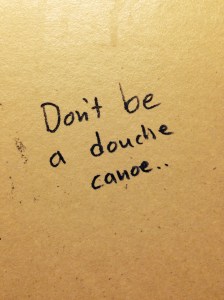 Don't be
a douche
canoe..